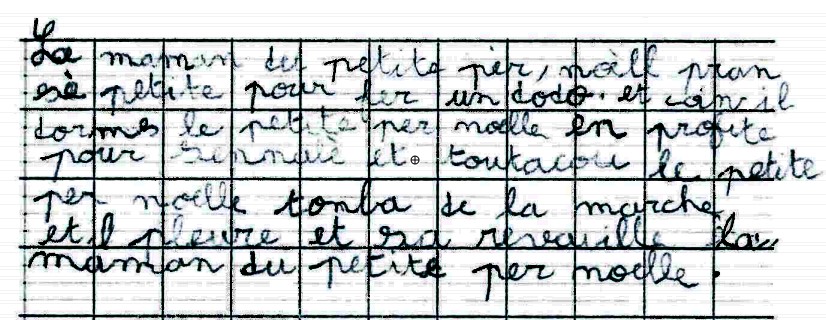 La maman du petite pèr, noàll pran
sè petite pour fer un dodo. et can il
dormes le petite per noelle en profite
pour sennalè et toutacou le petite
per noelle tomba de la marche
et l pleure et sa revaille la
maman du petite per noelle.